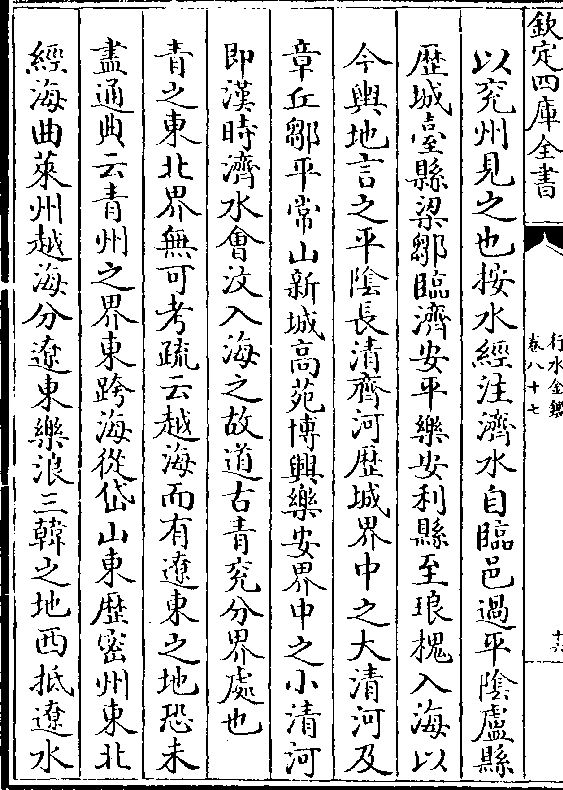 欽定四庫全書
行水金鑑
卷八十七
十六
以兖州見之也按水經注濟水自臨邑過平隂盧縣
歴城臺縣梁鄒臨濟安平樂安利縣至琅槐入海以
今輿地言之平隂長清齊河歴城界中之大清河及
章丘鄒平常山新城高苑博興樂安界中之小清河
即漢時濟水㑹汶入海之故道古青兖分界處也
青之東北界無可考疏云越海而有遼東之地恐未
盡通典云青州之界東跨海從岱山東歴密州東北
經海曲萊州越海分遼東樂浪三韓之地西抵遼水